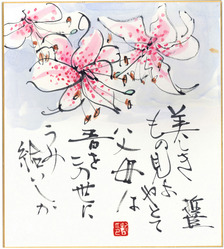 美しき
もの見よやとて
父母は
吾をこの世に
うみ
給いしか